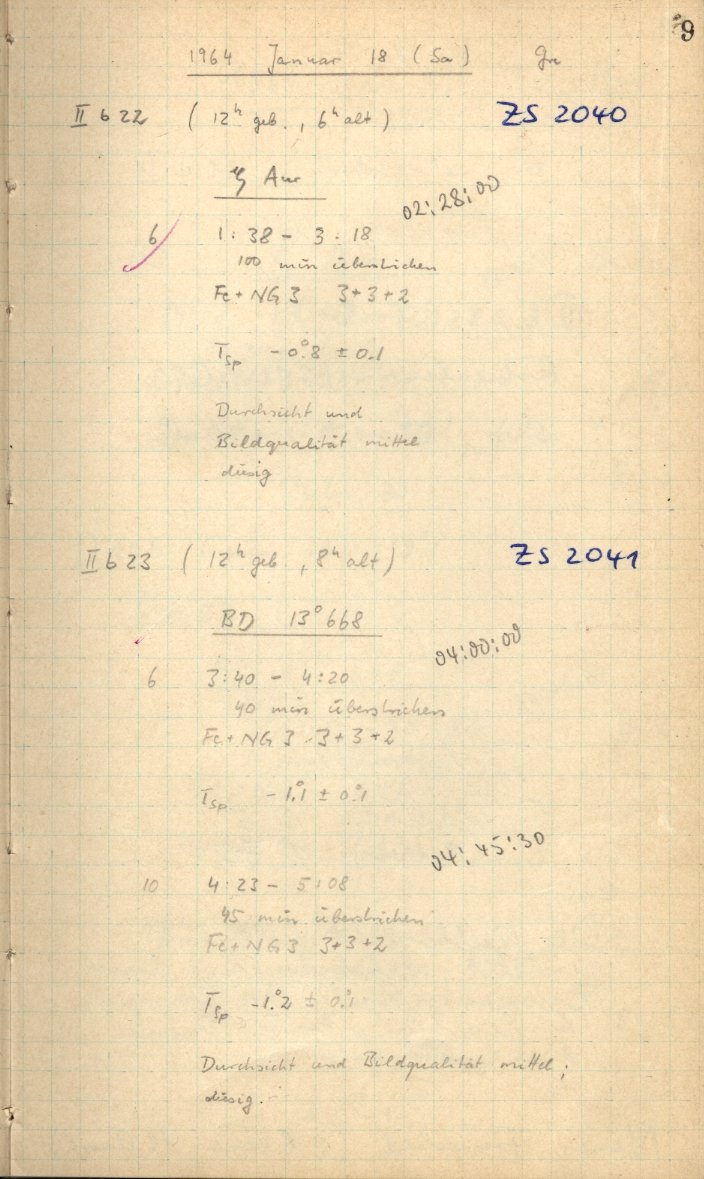 9
1964 Januar 18 (Sa) Gr
II b 22 (12h geb., 6h alt) ZS 2040
ζ Aur
02:28:00
6 1:38 - 3:18
100 min überstrichen
Fe + NG 3 3+3+2
TSp -0°.8 ± 0.1
Durchsicht und
Bildqualität mittel
diesig
II b 23 (12h geb., 8h alt) ZS 2041
BD 13°668
04:00:00
6 3:40 - 4:20
40 min überstrichen
Fe + NG 3 3+3+2
TSp -1°.1 ± 0°.1
04:45:30
10 4:23 - 5:08
45 min überstrichen
Fe + NG 3 3+3+2
TSp -1°.2 ± 0°.1
Durchsicht und Bildqualität mittel;
diesig.